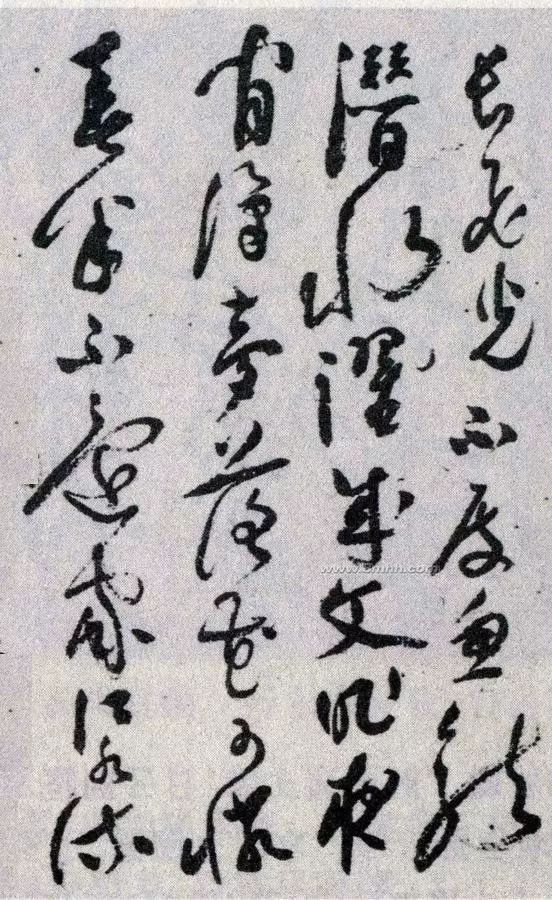 長飛光不度魚龍
潛水躍成文昨夜
閒潭夢落花可憐
春半不還家江水流